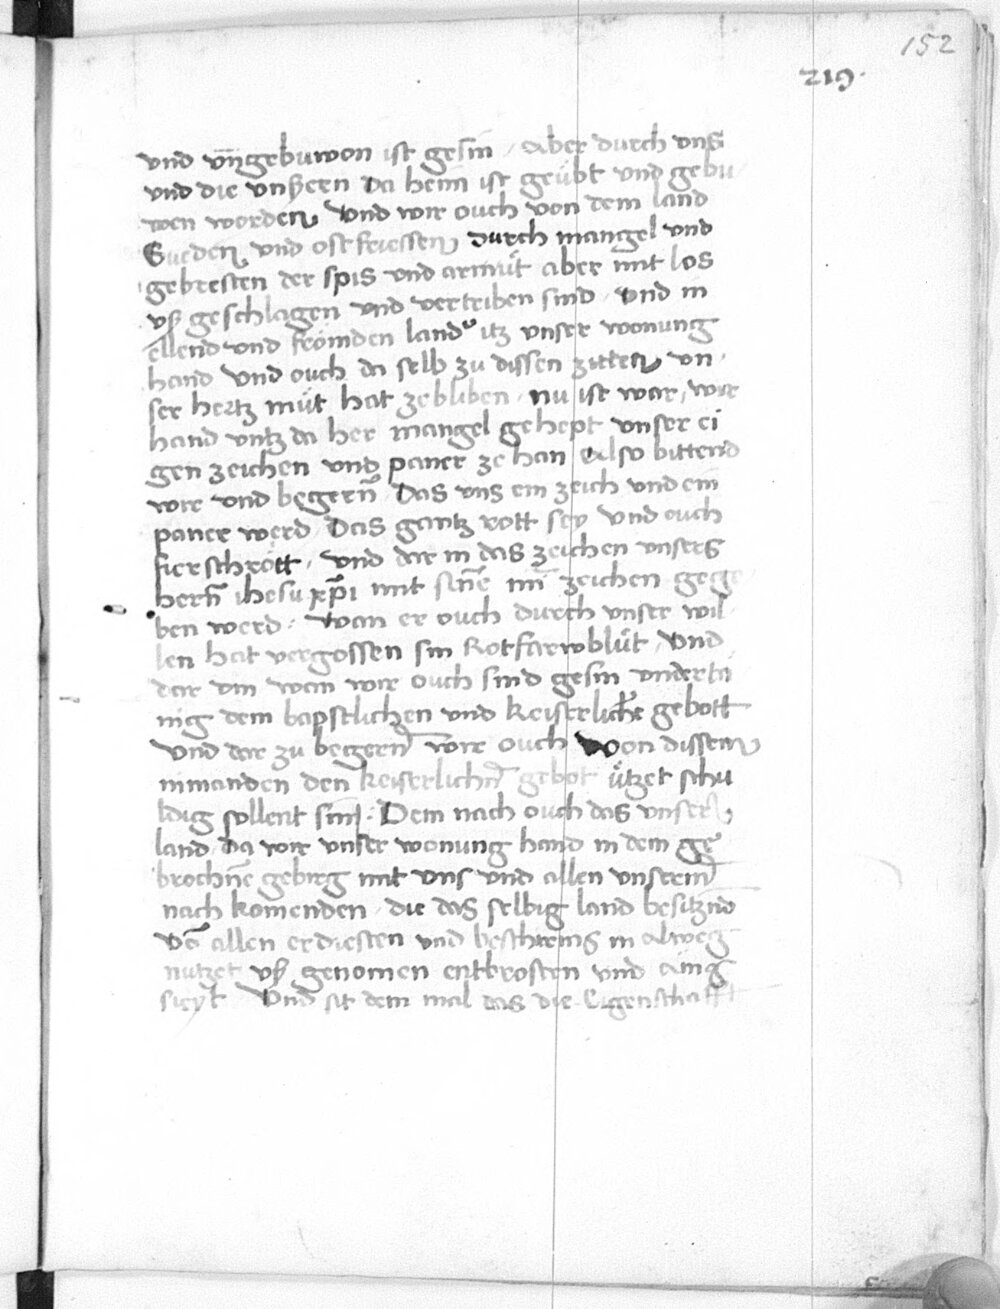 152
219.
vnd vngebuwon ist gesin / Aber durch vns
vnd die vnsern Da heim ist geübt vnd gebu
wen worden Vnd wir ouch von dem land
Sueden vnd ostfriessen durch mangel vnd
gebresten der spis vnd armüt aber mit los
vß geschlagen vnd vertriben sind / Vnd in
ellend vnd frömden land itz vnser wonung
hand Vnd ouch da selb zu dissen zitten vn
ser hertz müt hat zebliben / nu ist war / wir
hand vntz da her mangel gehept vnser ei
gen zeichen vnd paner ze han Also bittend
wir vnd begern̄ Das vns ein zeich vnd ein
paner werd / Das gantz rott sey Vnd ouch
fierschrött / Vnd dar in das zeichen vnsers
hern̄ ihesu xp̄i mit sinē zeichen gege
ben werd / Wan er ouch durch vnser wil
len hat vergossen sin Rotfarwblüt / Vnd
dar vm wan wir ouch sind gesin vnderta
nig dem bapstlichen vnd keiserlichē gebott
Vnd dar zu begern̄ wir ouch Won dissem
nimanden den keiserlichn̄ gebot ützet schu
ldig sollent sin / Dem nach ouch das vnser
land / Da wir vnser wonung hand in dem ge
brochnē gebirg mit vns vnd allen vnsern̄
nach komenden / die das selbig land besitznd
Vō allen
nutzet vß genomen entbrosten vnd
Vnd sit dem mal das die Eigenschafft